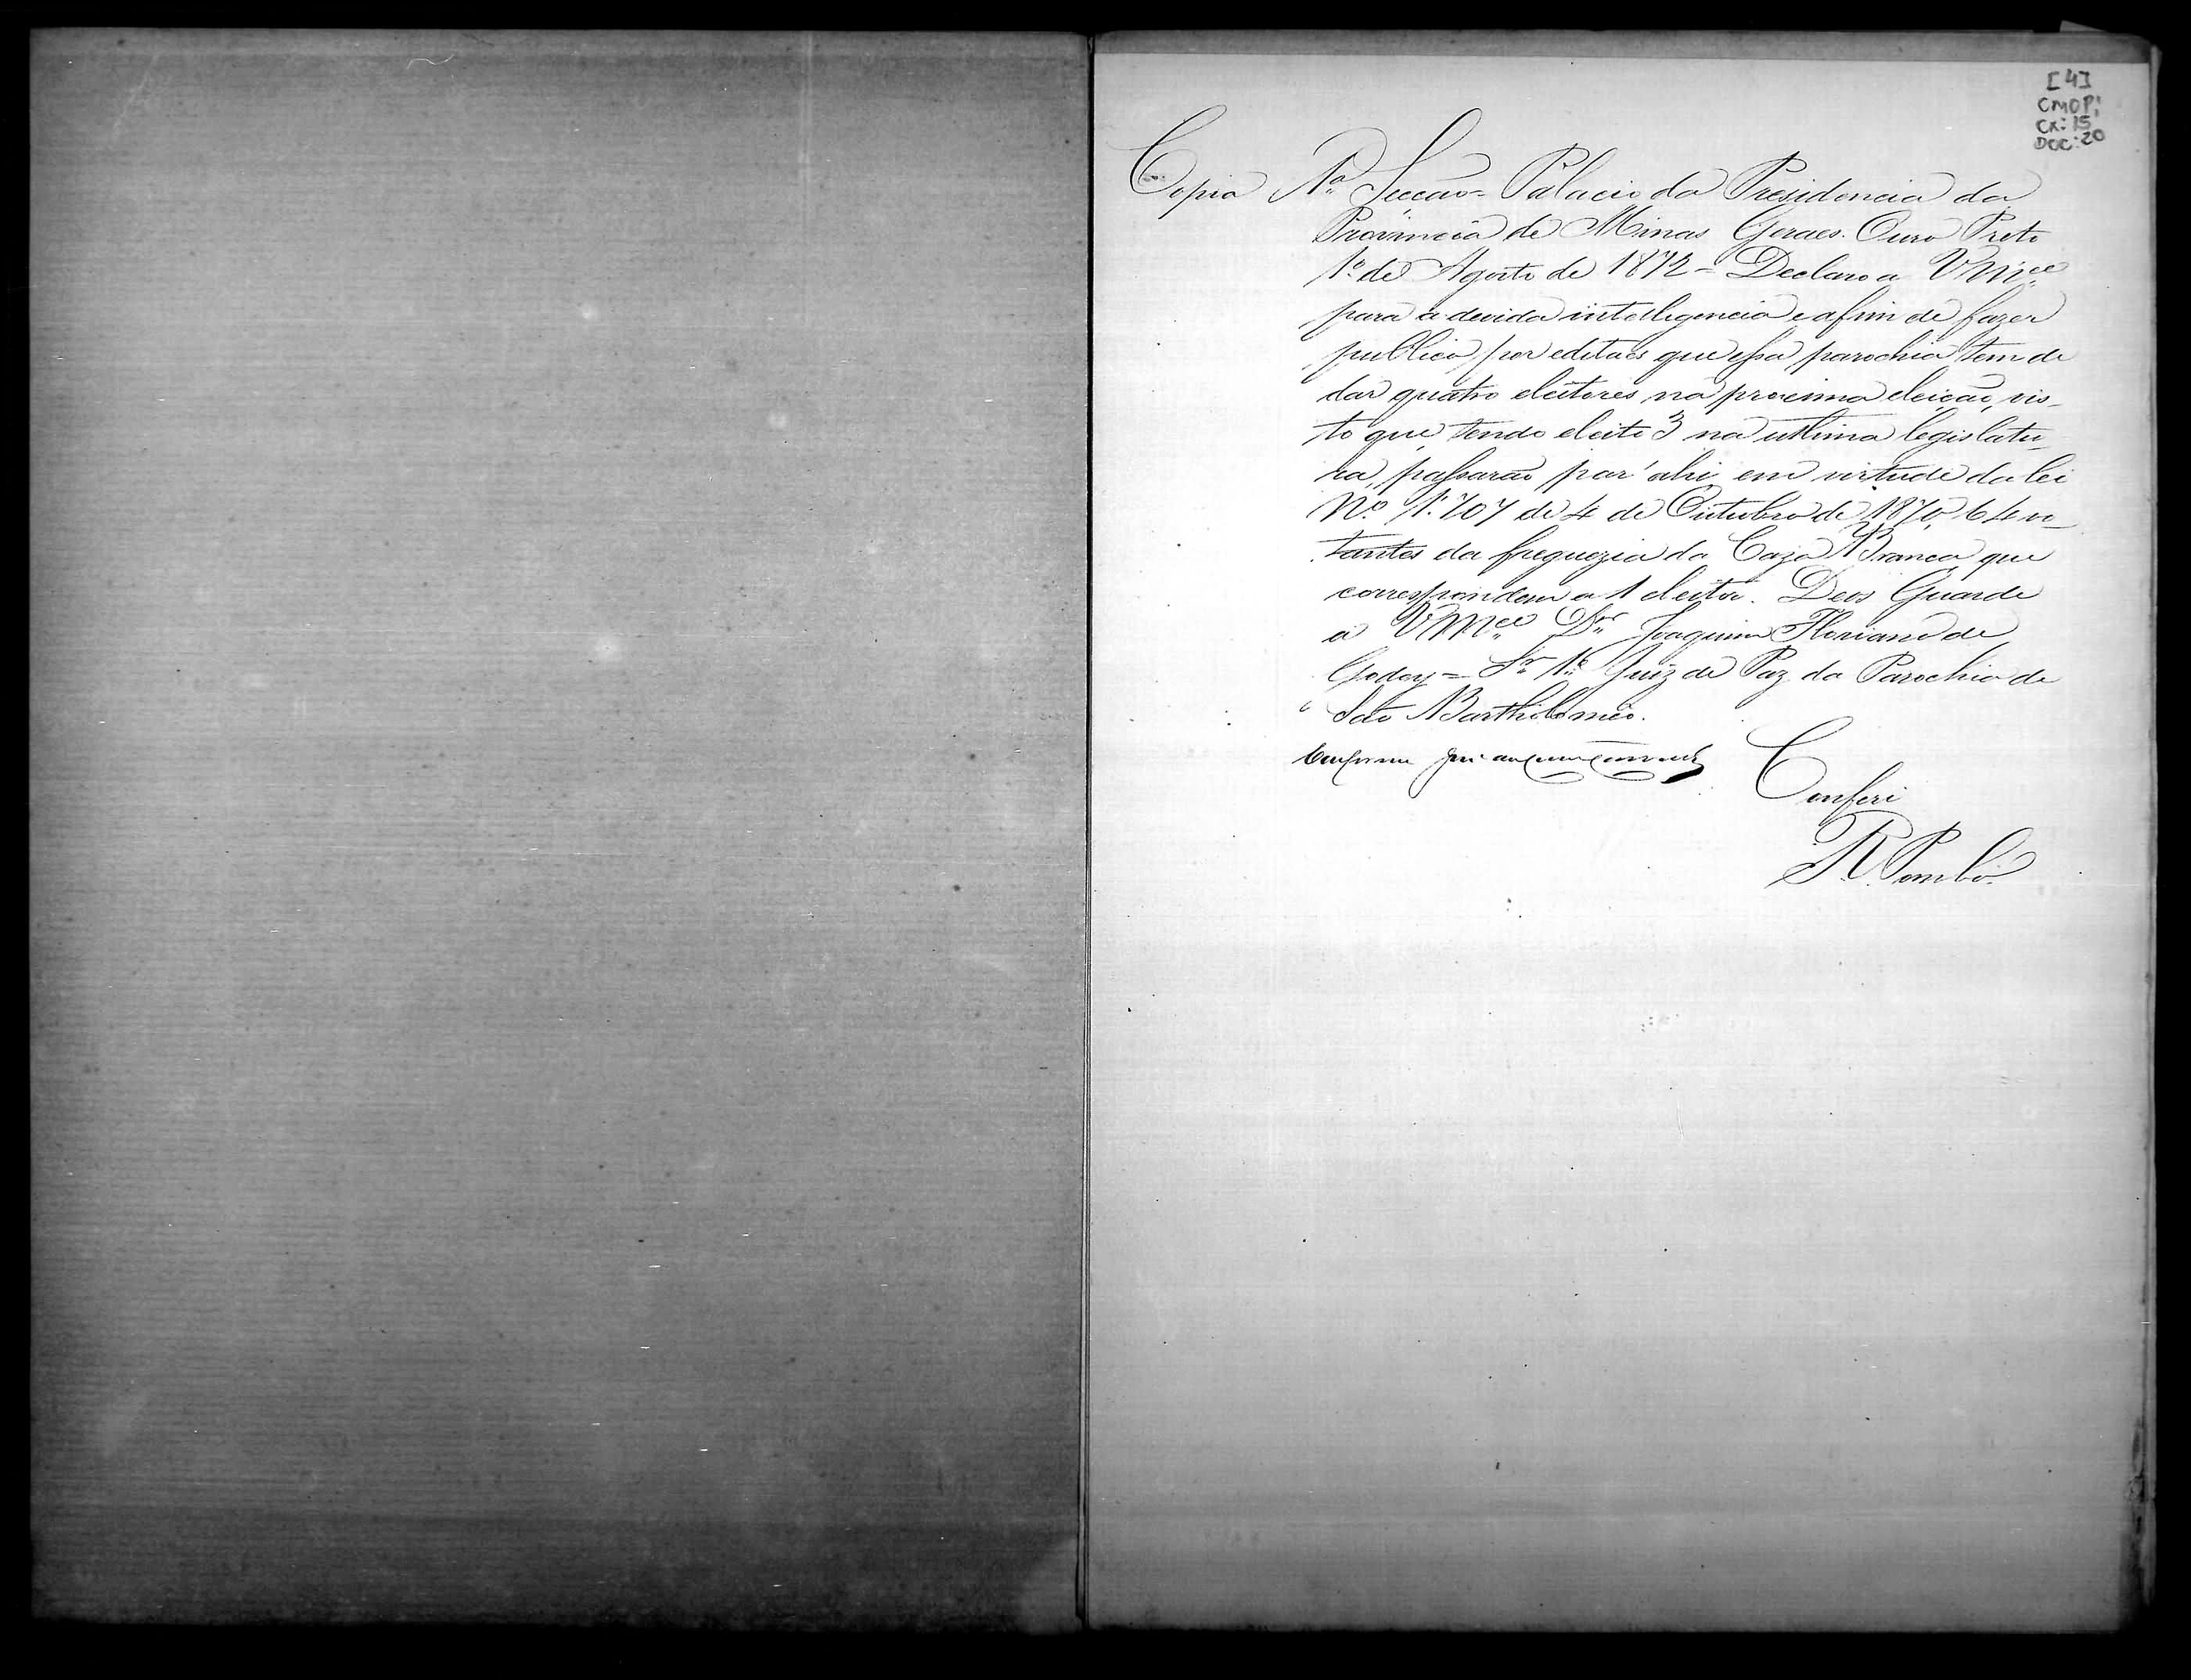 [4]
CMOP;
CX: 15,
DOC: 20
Copia 1.ª Secção = Palacio da Presidencia da
Provincia de Minas Geraes. Ouro Preto
1.º de Agosto de 1872 = Declaro a VM.ce
para a devida intelligencia e afim de fazer
publico por editaes que essa parochia tem de
dar quatro eleitores na proxima eleição, vis-
to que, tendo eleito 3 na ultima legislatu-
ra, passarão par' ahi em virtude da lei
N.º 1.707 de 4 de Outubro de 1870 64 vo-
tantes da freguezia da Caza Branca que
correspondem a 1 eleitor. Deos Guarde
a VM.ce D.r Joaquim Floriano de
Godoy = S.r 1.º Juiz de Paz da Parochia de
São Bartholomeo.
Conforme
Conferi
R. Pombo.